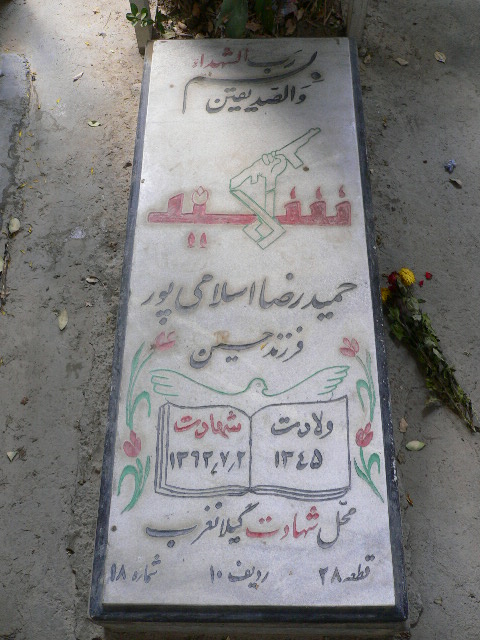 بسم رب الشهداء
والصدیقین
حمید رضا اسلامی پور
فرزند حسین
ولادت شهادت
۱۳۴۵ ۱۳۶۲٫۷٫۲
محل شهادت گیلانغرب
قطعه ۲۸ ردیف ۱۰ شماره ۱۸